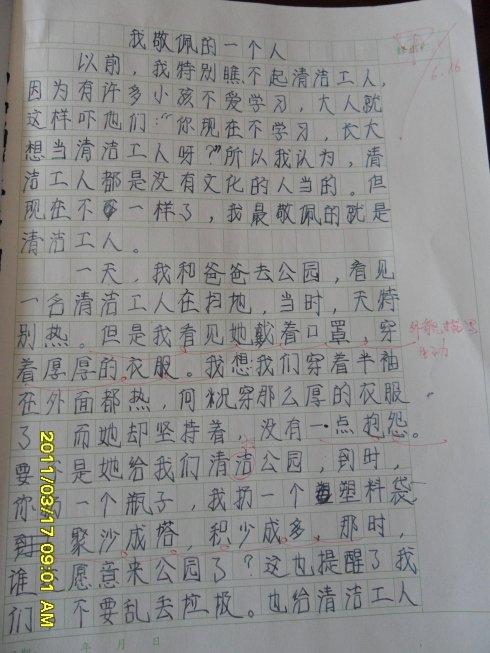 我敬佩的一个人
以前，我特别瞧不起清洁工人，
因为有许多小孩不爱学习，大人就
这样吓他们：“你现在不学习，长大
想当清洁工人呀？”所以我认为，清
洁工人都是没有文化的人当的。但
现在不一样了，我最敬佩的就是
清洁工人。
一天，我和爸爸去公园，看见
一名清洁工人在扫地，当时，天特
别热。但是我看见她戴着口罩，穿
着厚厚的衣服。我想我们穿着半袖
在外面都热，何况穿那么厚的衣服
了 而她却坚持着，没有一点抱怨。
要不是她给我们清洁公园，到时，
你扔一个瓶子，我扔一个塑料袋，
聚沙成塔，积少成多，那时，
谁 愿意来公园了？这也提醒了我
们 不要乱丢垃圾。也给清洁工人
年 月 日
6.16
2011/03/17 09:01 AM